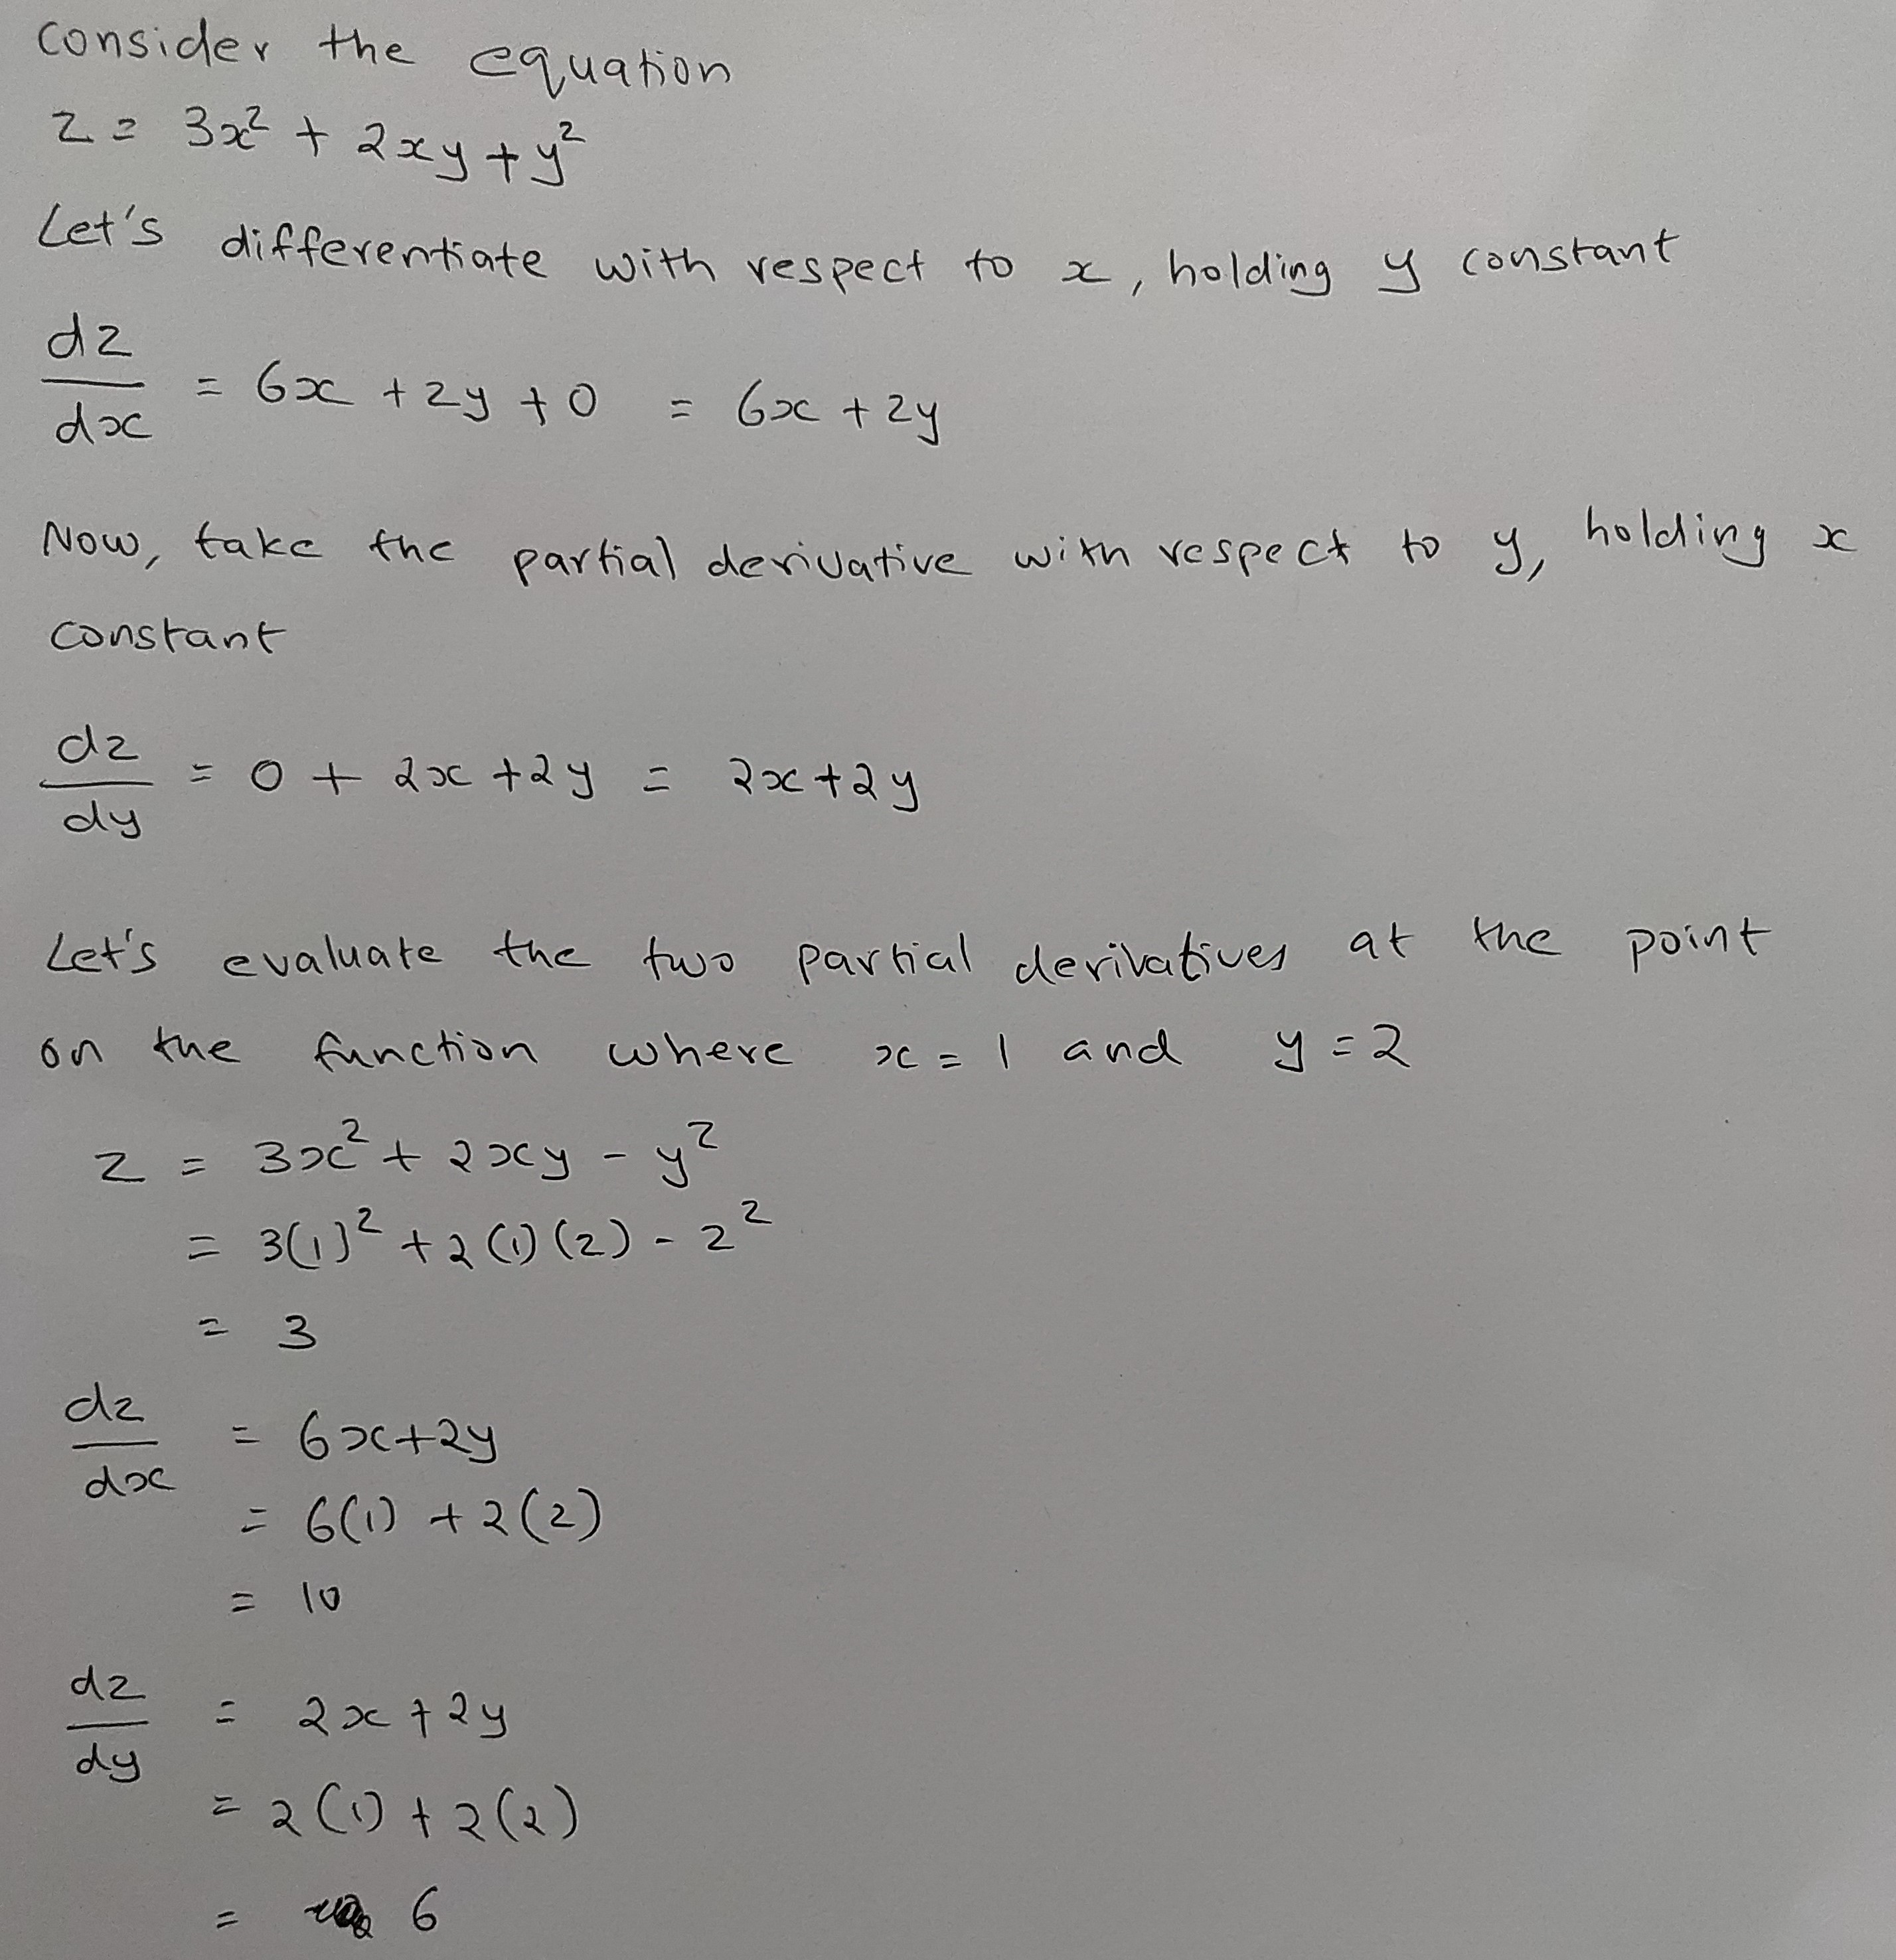 Consider the equation
z = 3x² + 2xy + y²
Let's differentiate with respect to x, holding y constant
dz/dx = 6x + 2y + 0 = 6x + 2y
Now, take the partial derivative with respect to y, holding x
constant
dz/dy = 0 + 2x + 2y = 2x + 2y
Let's evaluate the two partial derivatives at the point
on the function where x = 1 and y = 2
z = 3x² + 2xy - y²
= 3(1)² + 2(1)(2) - 2²
= 3
dz/dx = 6x + 2y
= 6(1) + 2(2)
= 10
dz/dy = 2x + 2y
= 2(1) + 2(2)
= 6